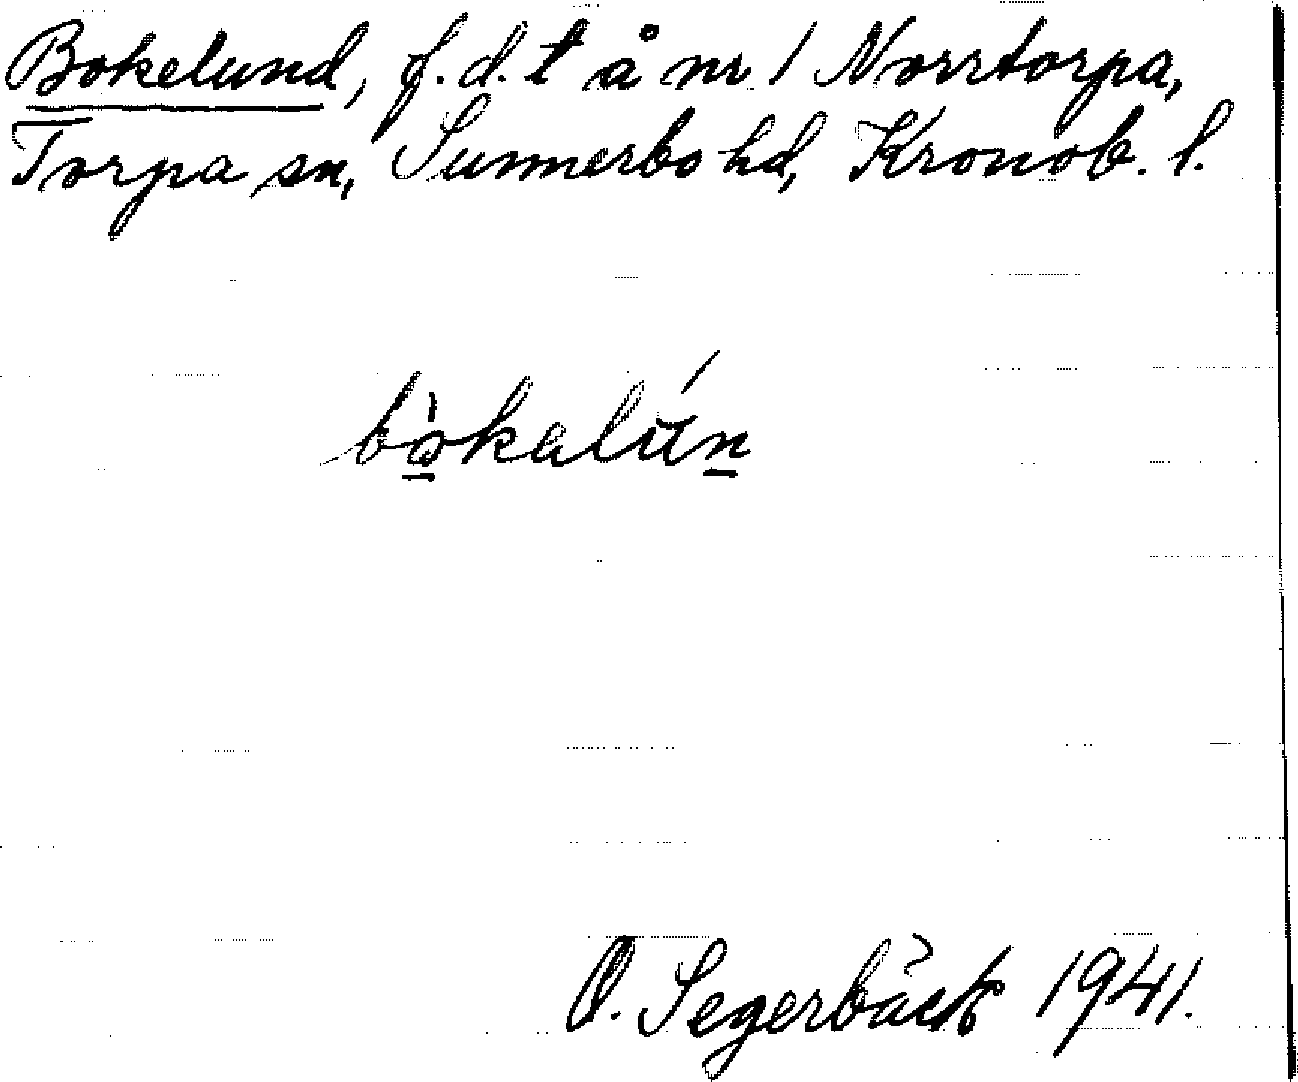 Bokelund, f.d. t å nr 1 Norrtorpa,
Torpa sn, Sunnerbo hd, Kronob. l.
bòkalún
O. Segerbäck 1941.